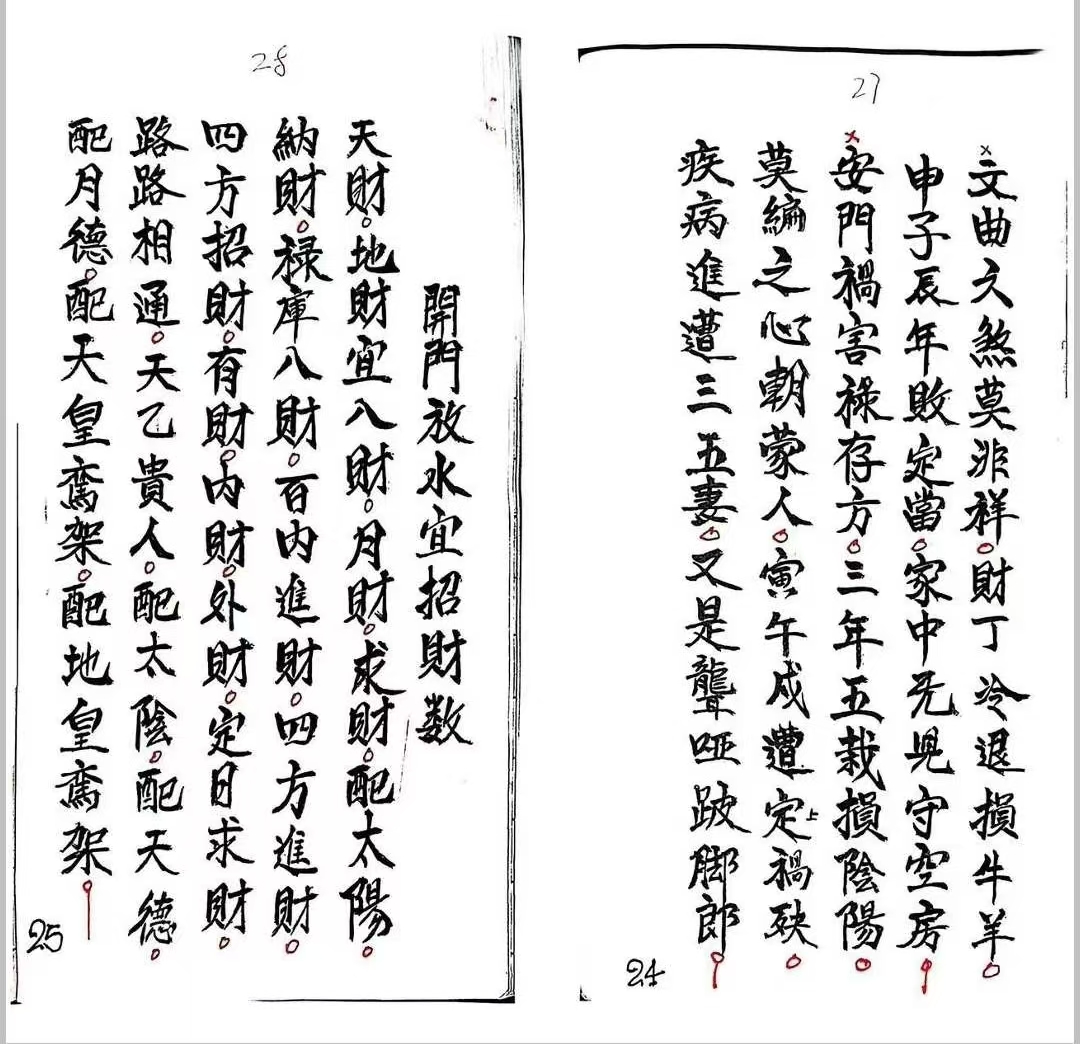 27
文曲文煞莫非祥。財丁冷退損牛羊。
申子辰年敗定當。家中无児守空房。
安門禍害祿存方。三年五栽損陰陽。
莫編之心朝蒙人。寅午戍遭定上禍殃。
疾病進遭三五妻。又是聾啞跛脚郎。
24
28
開門放水宜招財数
天財。地財宜八財。月財。求財。配太陽。
納財。禄庫八財。百内進財。四方進財。
四方招財。有財。内財。外財。定日求財。
路路相通。天乙貴人。配太陰。配天德。
配月德。配天皇鸞架。配地皇鸞架。
25